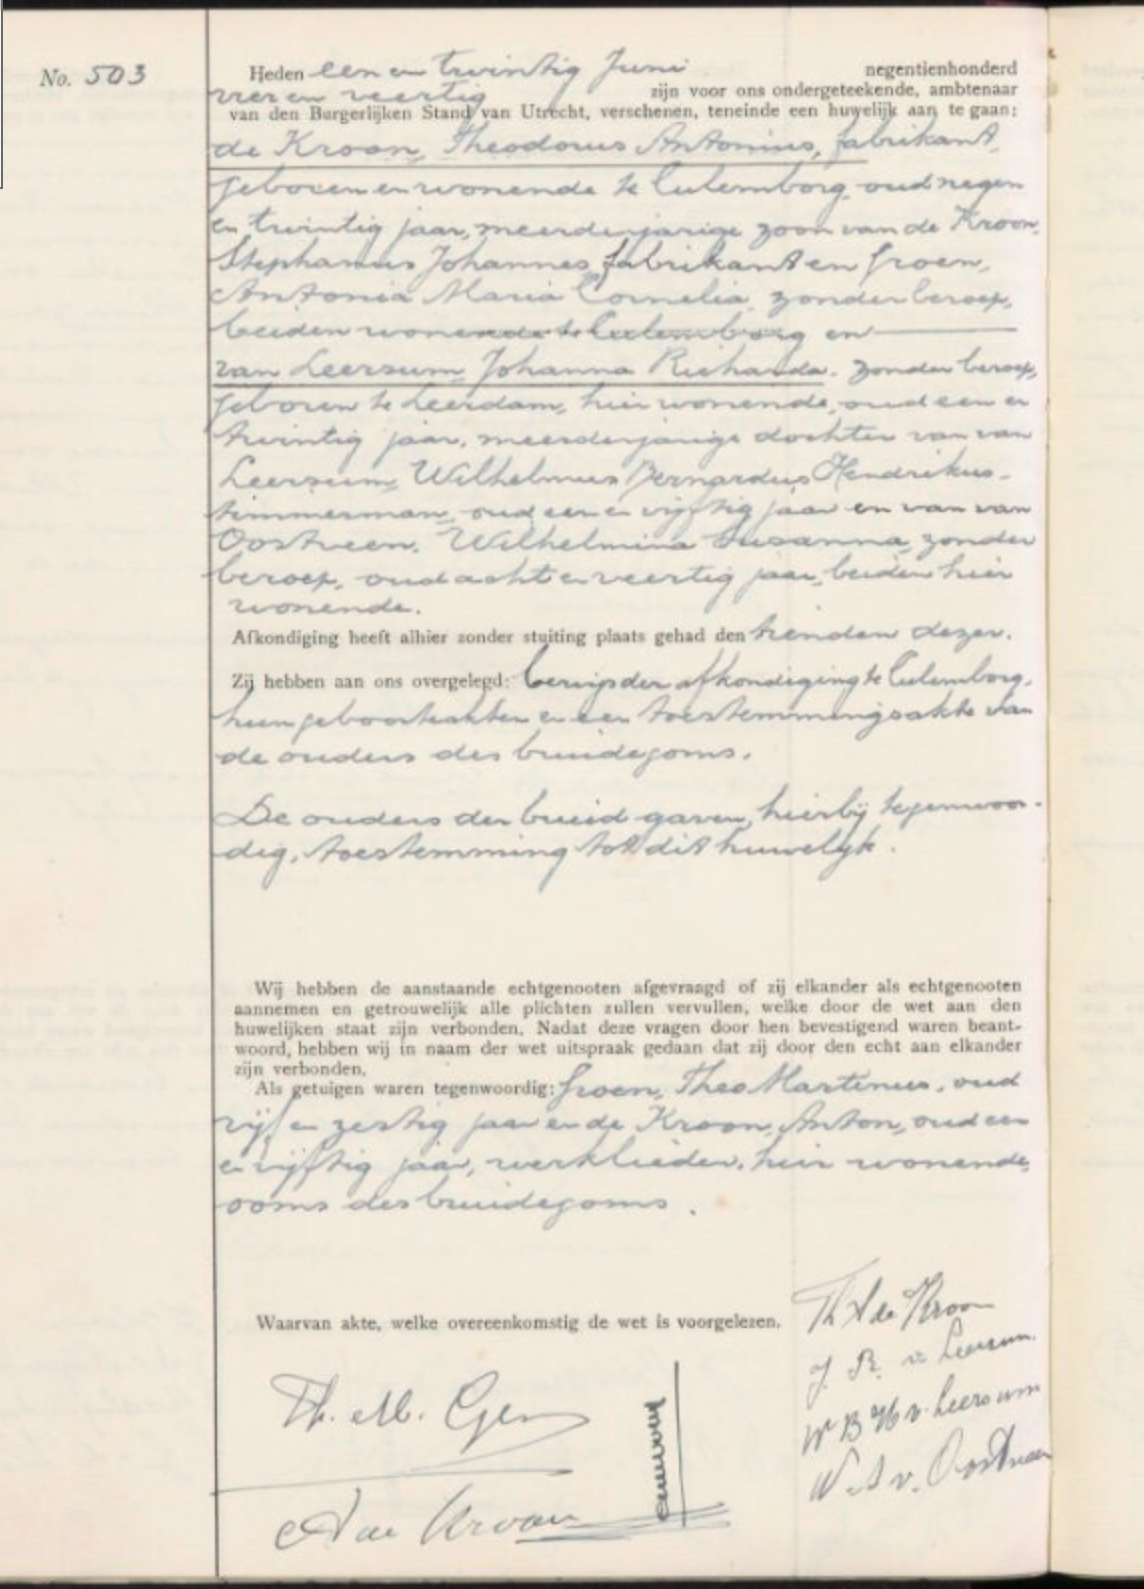 No. 503
Heden een en twintig Juni negentienhonderd
vier en veertig zijn voor ons ondergeteekende, ambtenaar
van den Burgerlijken Stand van Utrecht, verschenen, teneinde een huwelijk aan te gaan:
de Kroon, Theodorus Antonius, fabrikant,
geboren en wonende te Culemborg, oud negen
en twintig jaar, meerderjarige zoon van de Kroon,
Stephanus Johannes, fabrikant en Groen,
Antonia Maria Cornelia, zonder beroep,
beiden wonende te Culemborg en
van Leersum, Johanna Richarda, zonder beroep,
geboren te Leerdam, hier wonende, oud een en
twintig jaar, meerderjarige dochter van van
Leersum, Wilhelmus Bernardus Hendrikus,
timmerman, oud een en vijftig jaar en van van
Oostveen, Wilhelmina Susanna, zonder
beroep, oud acht en veertig jaar, beiden hier
wonende.
Afkondiging heeft alhier zonder stuiting plaats gehad den tienden dezer.
Zij hebben aan ons overgelegd: bewijs der afkondiging te Culemborg,
hun geboorteakten en een toestemmingsakte van
de ouders des bruidegoms.
De ouders der bruid gaven, hierbij tegenwoor-
dig, toestemming tot dit huwelijk.
Wij hebben de aanstaande echtgenooten afgevraagd of zij elkander als echtgenooten
aannemen en getrouwelijk alle plichten zullen vervullen, welke door de wet aan den
huwelijken staat zijn verbonden. Nadat deze vragen door hen bevestigend waren beant-
woord, hebben wij in naam der wet uitspraak gedaan dat zij door den echt aan elkander
zijn verbonden.
Als getuigen waren tegenwoordig: Groen, Theo Martinus, oud
vijf en zestig jaar en de Kroon, Anton, oud een
en vijftig jaar, werklieden, hier wonende,
ooms des bruidegoms.
Waarvan akte, welke overeenkomstig de wet is voorgelezen.
Th A de Kroon
J. R. v. Leersum.
W B H v. Leersum
W. S v. Oostveen
Th. M. Groen
A de Kroon